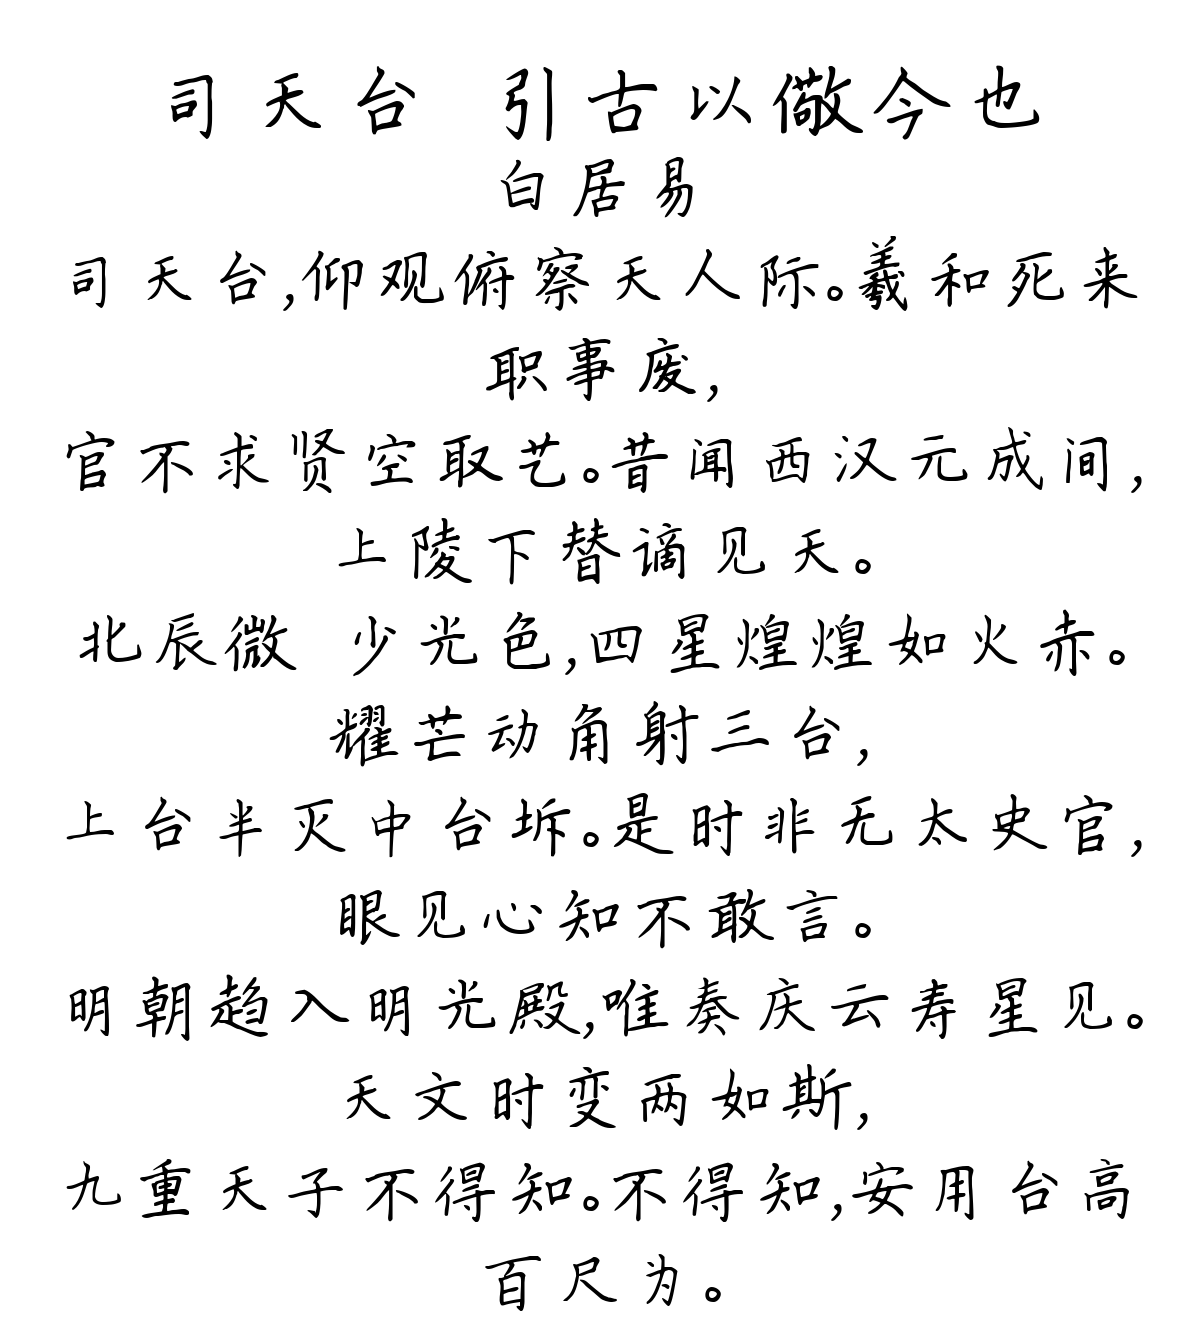 司天台 引古以儆今也
白居易
司天台,仰观俯察天人际。羲和死来
职事废,
官不求贤空取艺。昔闻西汉元成间,
上陵下替谪见天。
北辰微 少光色,四星煌煌如火赤。
耀芒动角射三台,
上台半灭中台坼。是时非无太史官,
眼见心知不敢言。
明朝趋入明光殿,唯奏庆云寿星见。
天文时变两如斯,
九重天子不得知。不得知,安用台高
百尺为。